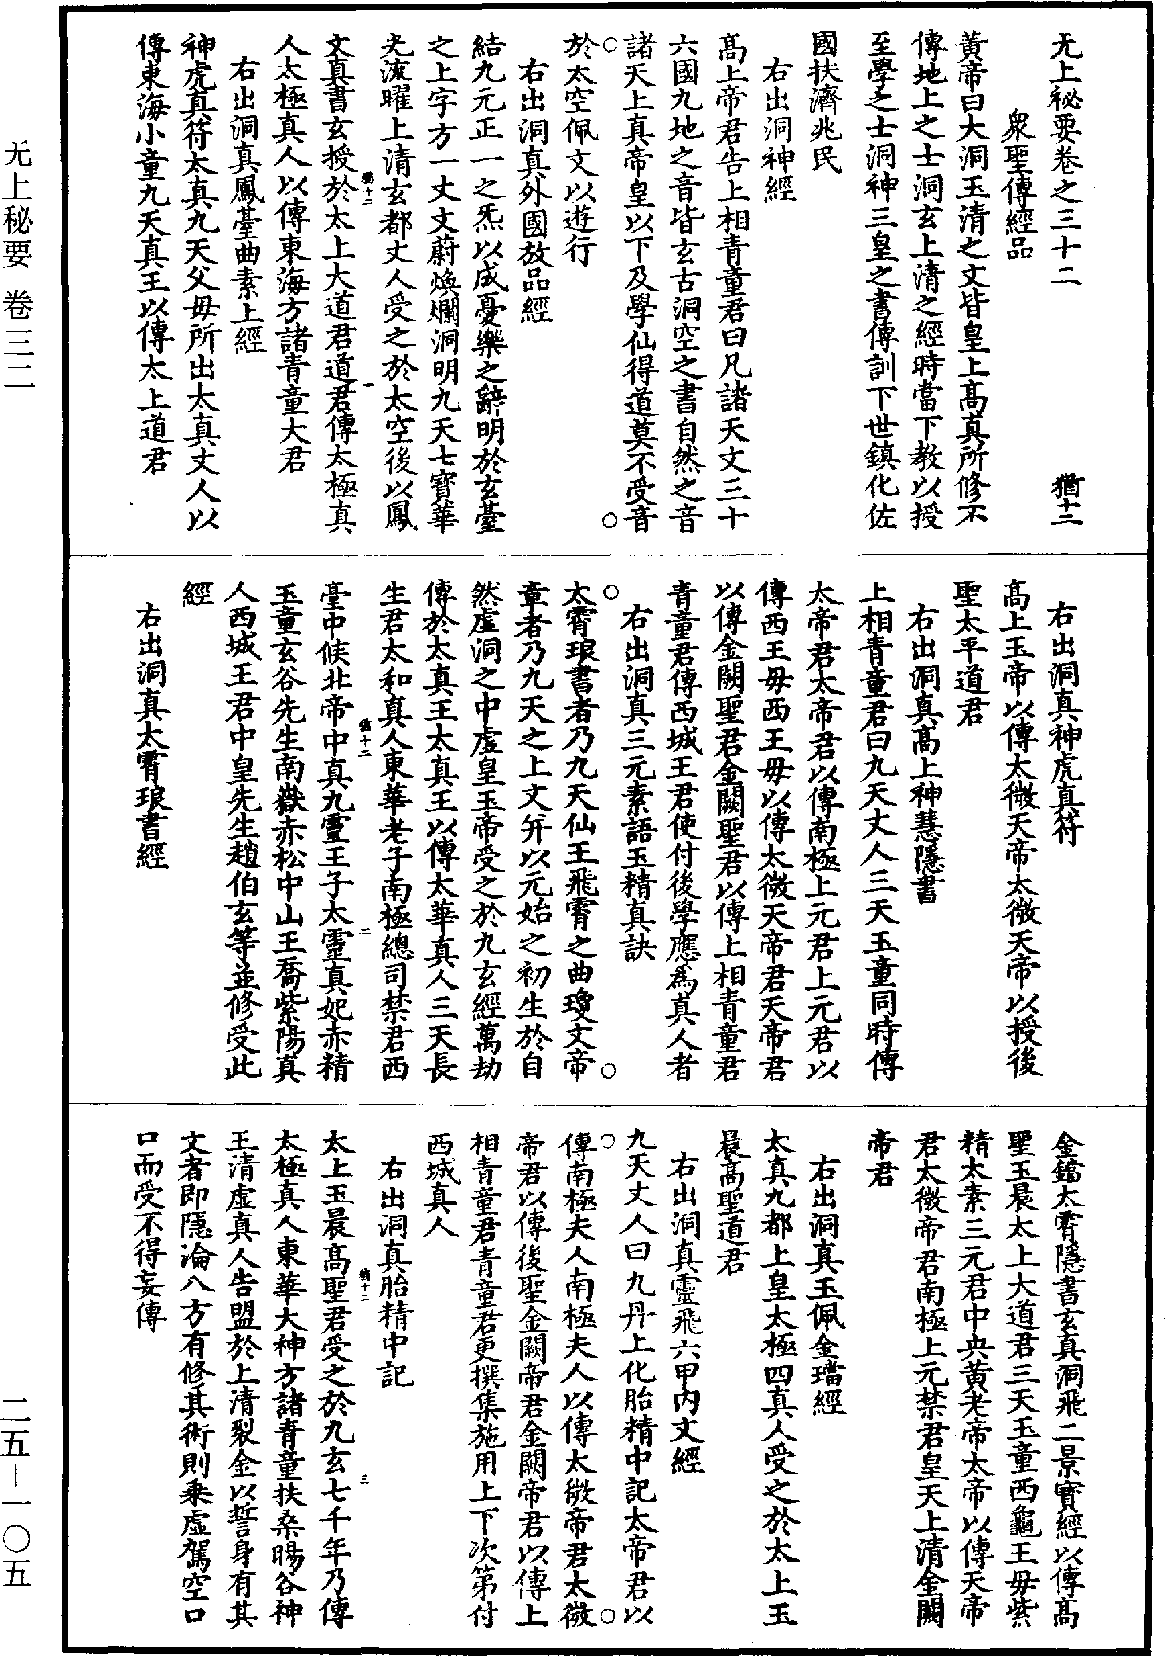 无上秘要卷之三十二　猶十二
衆聖傳經品
黄帝曰大洞玉清之文皆皇上髙真所修不
傳地上之士洞玄上清之經時當下教以授
至學之士洞神三皇之書傳訓下世鎮化佐
國扶濟兆民
右出洞神經
髙上帝君告上相青童君曰凡諸天文三十
六國九地之音皆玄古洞空之書自然之音
諸天上真帝皇以下及學仙得道莫不受音
於太空佩文以遊行
右出洞真外國放品經
結九元正一之炁以成憂樂之辭明於玄臺
之上字方一丈文蔚煥爛洞明九天七寳華
光流曜上清玄都丈人受之於太空後以鳳
文真書玄授於太上大道君道君傳太極真
人太極真人以傳東海方諸青童大君
右出洞真鳳臺曲素上經
神虎真符太真九天父母所出太真丈人以
傳東海小童九天真王以傳太上道君
右出洞真神虎真符
髙上玉帝以傳太微天帝太微天帝以授後
聖太平道君
右出洞真髙上神慧隱書
上相青童君曰九天丈人三天玉童同時傳
太帝君太帝君以傳南極上元君上元君以
傳西王母西王母以傳太微天帝君天帝君
以傳金闕聖君金闕聖君以傳上相青童君
青童君傳西城王君使付後學應為真人者
右出洞真三元素語玉精真訣
太霄琅書者乃九天仙王飛霄之曲瓊文帝
章者乃九天之上文并以元始之初生於自
然虛洞之中虛皇玉帝受之於九玄經萬劫
傳於太真王太真王以傳太華真人三天長
生君太和真人東華老子南極總司禁君西
臺中候北帝中真九靈王子太靈真妃赤精
玉童玄谷先生南嶽赤松中山王喬紫陽真
人西城王君中皇先生趙伯玄等並修受此
經
右出洞真太霄琅書經
金鐺太霄隱書玄真洞飛二景寳經以傳髙
聖玉晨太上大道君三天玉童西龜王母紫
精太素三元君中央黄老帝太帝以傳天帝
君太微帝君南極上元禁君皇天上清金闕
帝君
右出洞真玉佩金璫經
太真九都上皇太極四真人受之於太上玉
晨髙聖道君
右出洞真靈飛六甲内文經
九天丈人曰九丹上化胎精中記太帝君以
傳南極夫人南極夫人以傳太微帝君太微
帝君以傳後聖金闕帝君金闕帝君以傳上
相青童君青童君更撰集施用上下次第付
西城真人
右出洞真胎精中記
太上玉晨髙聖君受之於九玄七千年乃傳
太極真人東華大神方諸青童扶桑暘谷神
王清虛真人告盟於上清裂金以誓身有其
文者即隱淪八方有修其術則乗虛駕空口
口而受不得妄傳
猶十二
一
猶十二
二
猶十二
三
无上秘要　卷三二
二五—一〇五